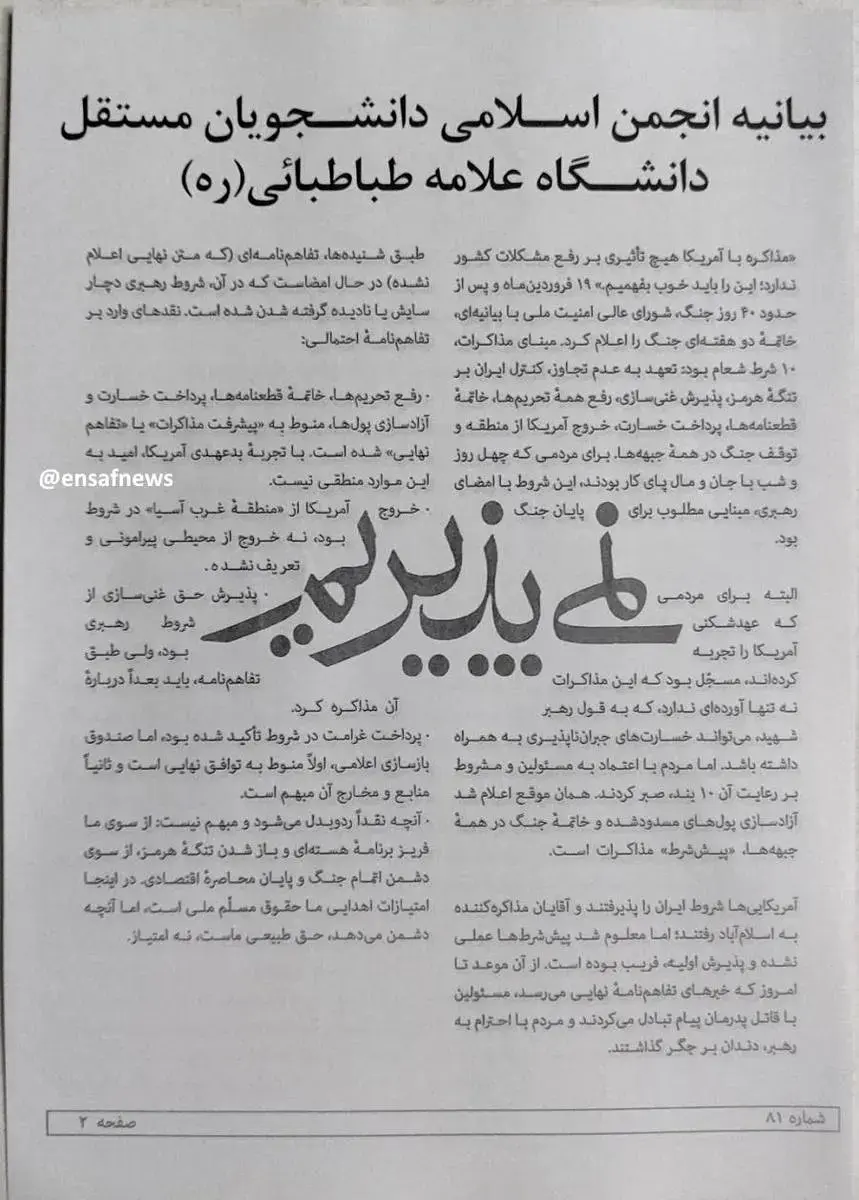 بیانیه انجمن اسلامی دانشجویان مستقل
دانشگاه علامه طباطبائی(ره)
«مذاکره با آمریکا هیچ تأثیری بر رفع مشکلات کشور
ندارد؛ این را باید خوب بفهمیم.» ۱۹ فروردین‌ماه و پس از
حدود ۴۰ روز جنگ، شورای عالی امنیت ملی با بیانیه‌ای،
خاتمهٔ دو هفته‌ای جنگ را اعلام کرد. مبنای مذاکرات،
۱۰ شرط شعام بود: تعهد به عدم تجاوز، کنترل ایران بر
تنگهٔ هرمز، پذیرش غنی‌سازی، رفع همهٔ تحریم‌ها، خاتمهٔ
قطعنامه‌ها، پرداخت خسارت، خروج آمریکا از منطقه و
توقف جنگ در همهٔ جبهه‌ها. برای مردمی که چهل روز
و شب با جان و مال پای کار بودند، این شروط با امضای
رهبری، مبنایی مطلوب برای پایان جنگ
بود.
البته برای مردمی
که عهدشکنی
آمریکا را تجربه
کرده‌اند، مسجّل بود که این مذاکرات
نه تنها آورده‌ای ندارد، که به قول رهبر
شهید، می‌تواند خسارت‌های جبران‌ناپذیری به همراه
داشته باشد. اما مردم با اعتماد به مسئولین و مشروط
بر رعایت آن ۱۰ بند، صبر کردند. همان موقع اعلام شد
آزادسازی پول‌های مسدودشده و خاتمهٔ جنگ در همهٔ
جبهه‌ها، «پیش‌شرط» مذاکرات است.
آمریکایی‌ها شروط ایران را پذیرفتند و آقایان مذاکره‌کننده
به اسلام‌آباد رفتند؛ اما معلوم شد پیش‌شرط‌ها عملی
نشده و پذیرش اولیه، فریب بوده است. از آن موعد تا
امروز که خبرهای تفاهم‌نامهٔ نهایی می‌رسد، مسئولین
با قاتل پدرمان پیام تبادل می‌کردند و مردم با احترام به
رهبر، دندان بر جگر گذاشتند.
نمی‌پذیریم
طبق شنیده‌ها، تفاهم‌نامه‌ای (که متن نهایی اعلام
نشده) در حال امضاست که در آن، شروط رهبری دچار
سایش یا نادیده گرفته شدن شده است. نقدهای وارد بر
تفاهم‌نامهٔ احتمالی:
· رفع تحریم‌ها، خاتمهٔ قطعنامه‌ها، پرداخت خسارت و
آزادسازی پول‌ها، منوط به «پیشرفت مذاکرات» یا «تفاهم
نهایی» شده است. با تجربهٔ بدعهدی آمریکا، امید به
این موارد منطقی نیست.
· خروج آمریکا از «منطقهٔ غرب آسیا» در شروط
بود، نه خروج از محیطی پیرامونی و
تعریف نشده.
· پذیرش حق غنی‌سازی از
شروط رهبری
بود، ولی طبق
تفاهم‌نامه، باید بعداً دربارهٔ
آن مذاکره کرد.
· پرداخت غرامت در شروط تأکید شده بود، اما صندوق
بازسازی اعلامی، اولاً منوط به توافق نهایی است و ثانیاً
منابع و مخارج آن مبهم است.
· آنچه نقداً ردوبدل می‌شود و مبهم نیست: از سوی ما
فریز برنامهٔ هسته‌ای و باز شدن تنگهٔ هرمز، از سوی
دشمن اتمام جنگ و پایان محاصرهٔ اقتصادی. در اینجا
امتیازات اهدایی ما حقوق مسلّم ملی است، اما آنچه
دشمن می‌دهد، حق طبیعی ماست، نه امتیاز.
@ensafnews
شماره ۸۱
صفحه ۲